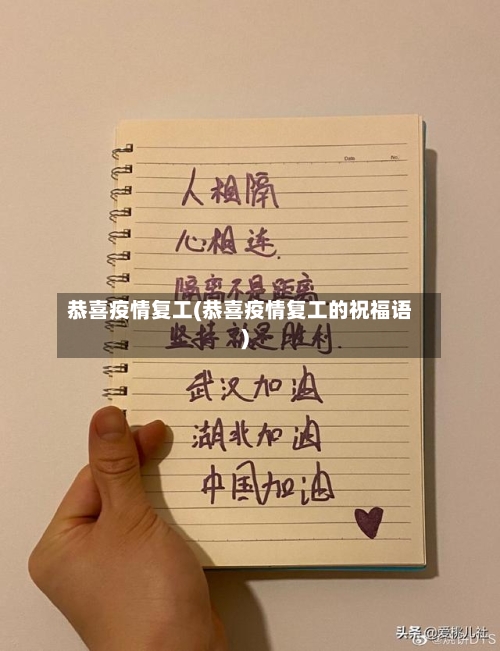 Date.
No.
人相隔
心相连.
隔离不是距离
恭喜疫情复工(恭喜疫情复工的祝福语
)
坚持就是胜利.
武汉加油
湖北加油
中国加油
头条 @爱桃儿社